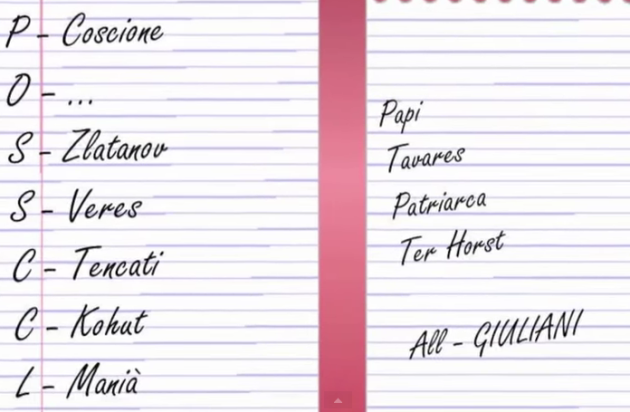 P - Coscione
O - ...
S - Zlatanov
S - Veres
C - Tencati
C - Kohut
L - Manià
Papi
Tavares
Patriarca
Ter Horst
All - GIULIANI